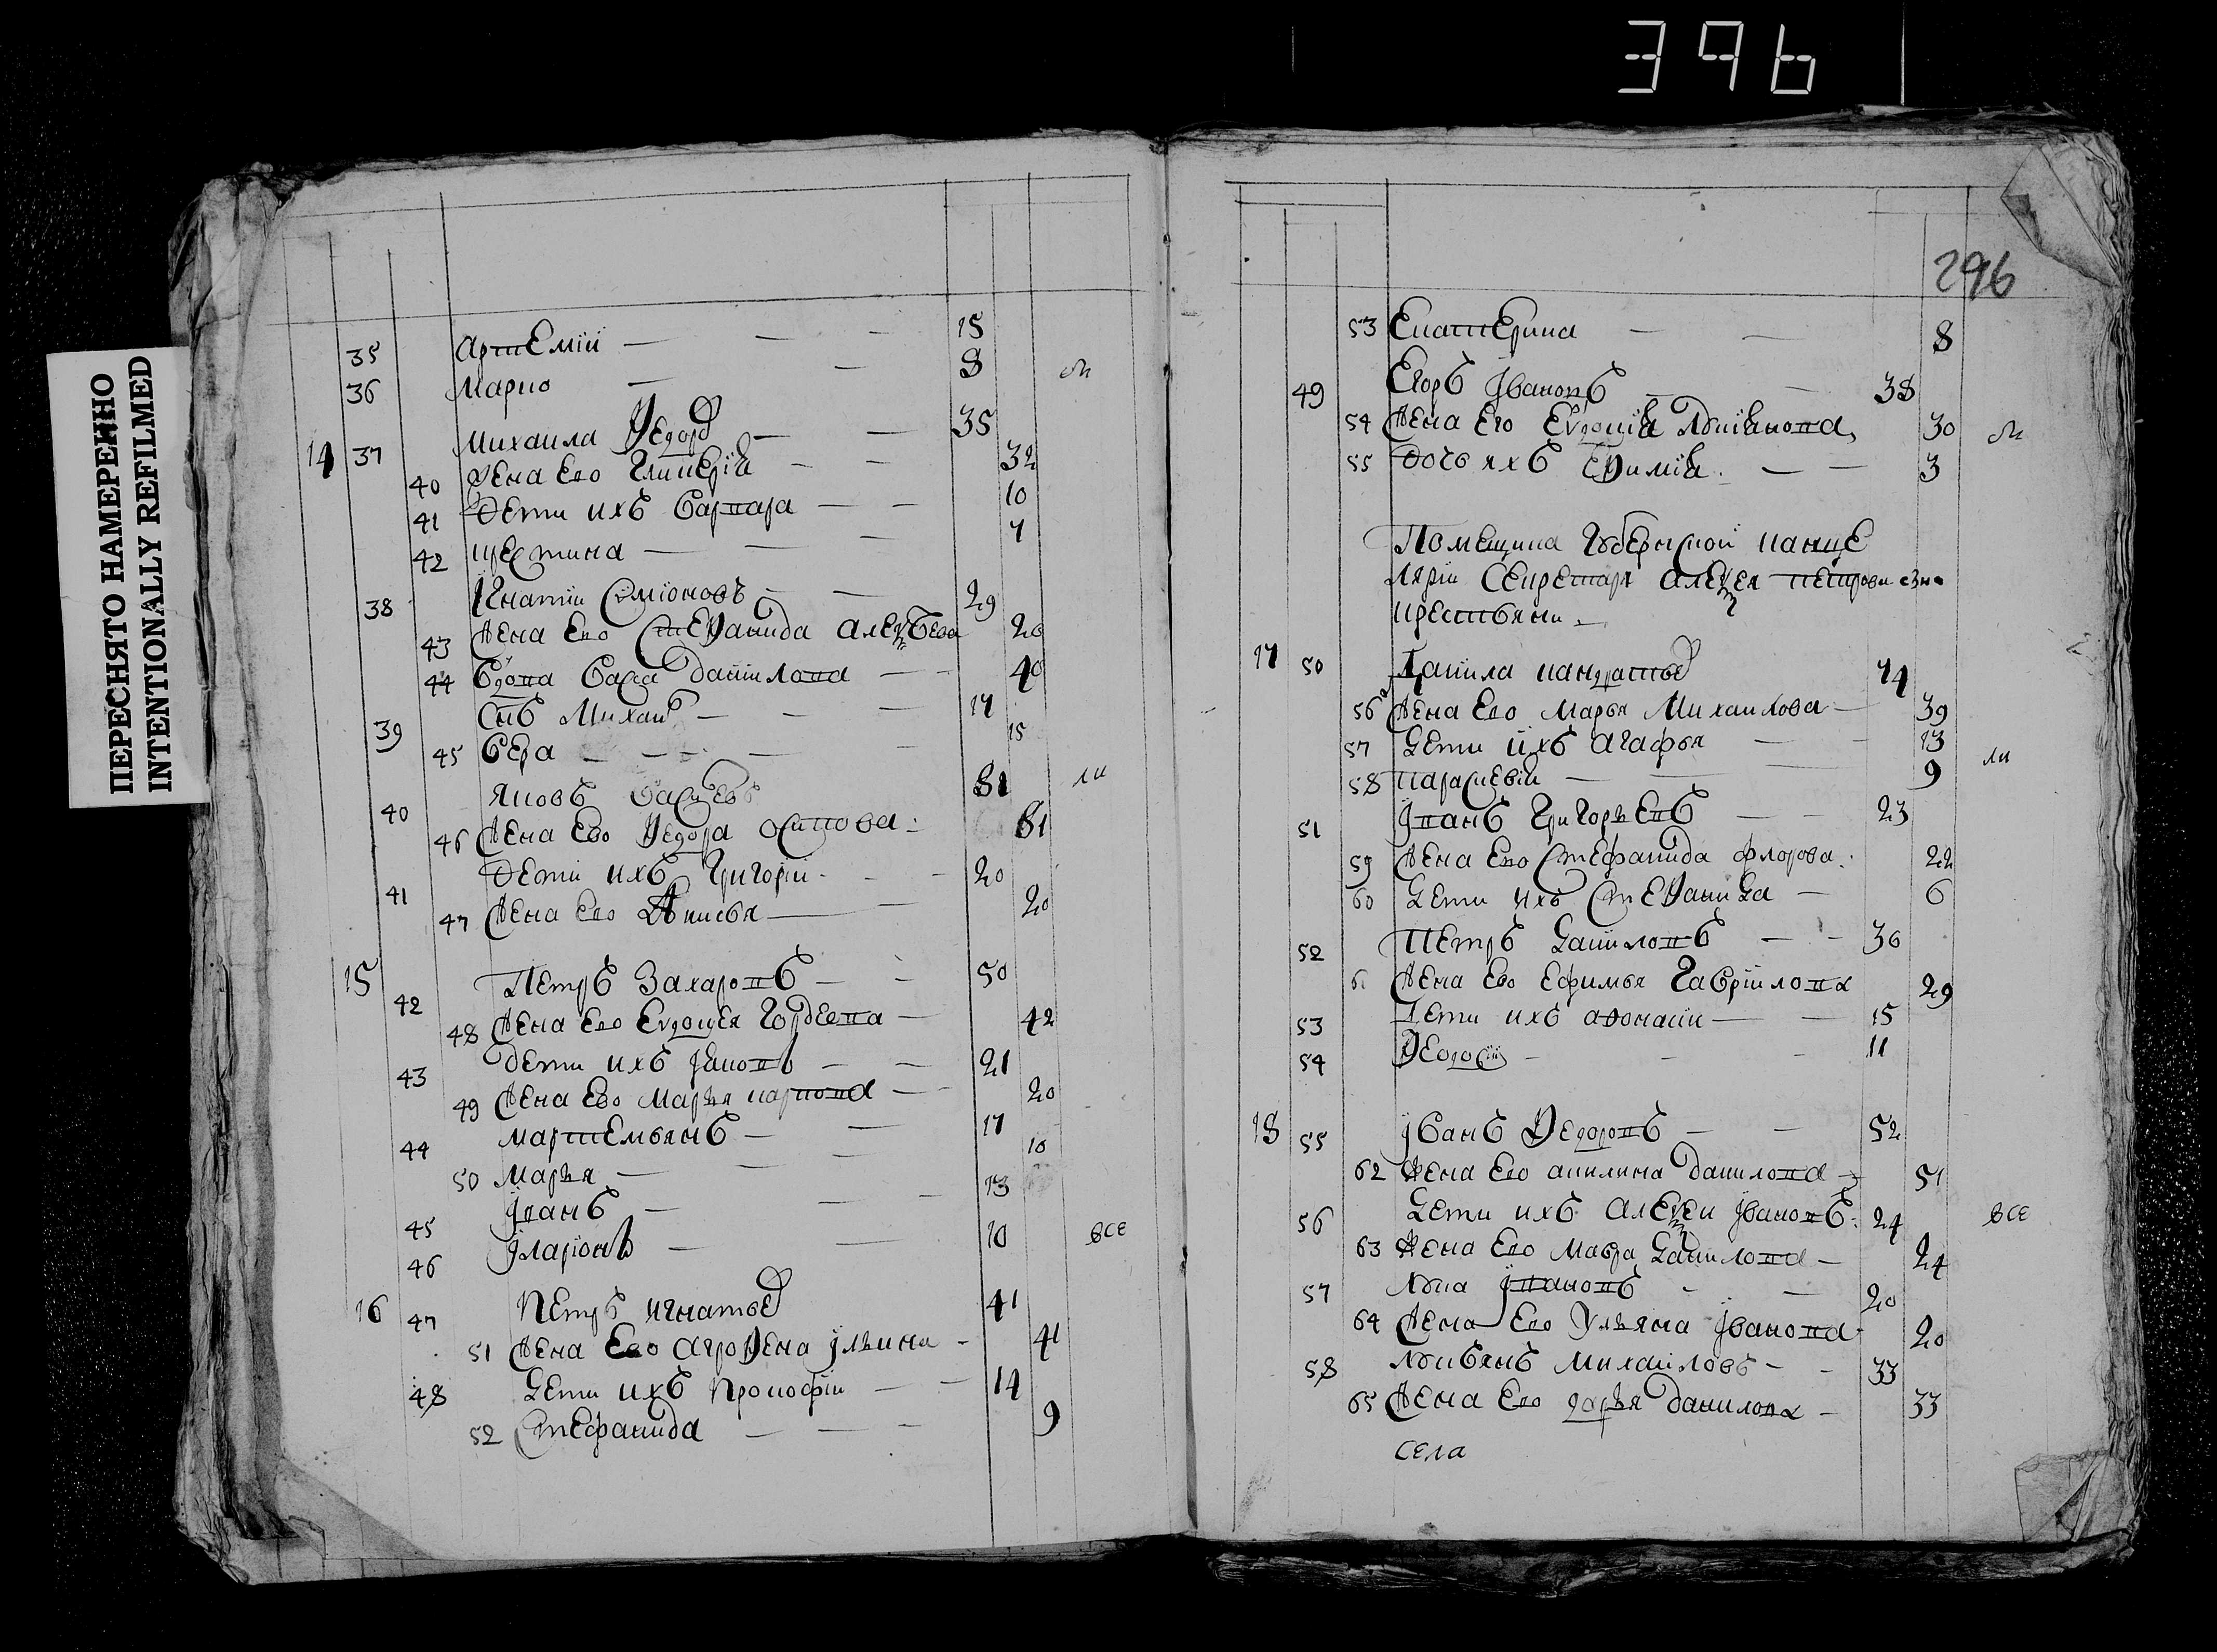 396
ПЕРЕСНЯТО НАМЕРЕННО
INTENTIONALLY REFILMED
35 Артемiй — — — 15
36 Марко — — 8
14 37 Михаила Федоров — — 35
40 Жена Ево Гликерiя — — 32
41 Дети ихъ Варвара — — 10
42 Христина — — — 7
38 Игнатiи Симiоновъ — — 29
43 Жена Ево Стефанида Алексеева 20
44 Вдова Васса Данiилова — — 40
39 Снъ Михаил — — — 17
45 Вера — — — 15
40 Яковъ 31
46 Жена Ево Федора Осипова 31
41 Дети ихъ Григорiи — — 20
47 Жена Ево Анисья — — 20
15 42 Петръ Захаровъ — — 50
48 Жена Ево Евдокея Гордеева — 42
43 Дети ихъ — — 21
49 Жена Ево Марья Карпова — — 20
44 Мартемьянъ — — 17
50 Марья — — — 10
45 Иванъ — — — 13
46 Iларiонъ — — 10 все
16 47 Петръ Игнатьев 41
51 Жена Ево Агрофена Iльина — 41
48 Дети ихъ Прокофiи — — 14
52 Стефанида — — — 9
296
53 Екатерина — — 8
49 Егоръ Iвановъ — — 38
54 Жена Его Евдокiя 30
55 Дочь ихъ Ефимiя — — 3
Помещика Губернской канце
лярiи Секретаря Алексея Петрова сна
крестьяни
17 50 Данiила Кандратьев 44
56 Жена Ево Марья Михаилова — 39
57 Дети ихъ Агафья — 13
58 Параскевiи — — 9 ли
51 Iванъ Григорьевъ — — 23
59 Жена Ево Стефанида Флорова 22
60 Дети ихъ Стефанида — 6
52 Петръ Данiиловъ — — 36
61 Жена Ево Ефимья Гаврiилова 29
53 Дети ихъ Афонасiи — — 15
54 Феодосiй — — — 11
18 55 Iванъ Федоровъ — — 52
62 Жена Ево Акилина Данилова — 51
56 Дети ихъ Алексеи Iвановъ 24 все
63 Жена Ево Мавра Данiилова — 24
57 Лука Iвановъ — — 20
64 Жена Ево Ульяна Iванова 20
58 Лукьянъ Михаиловъ — — 33
65 Жена Ево Дарья Данилова — 33
села